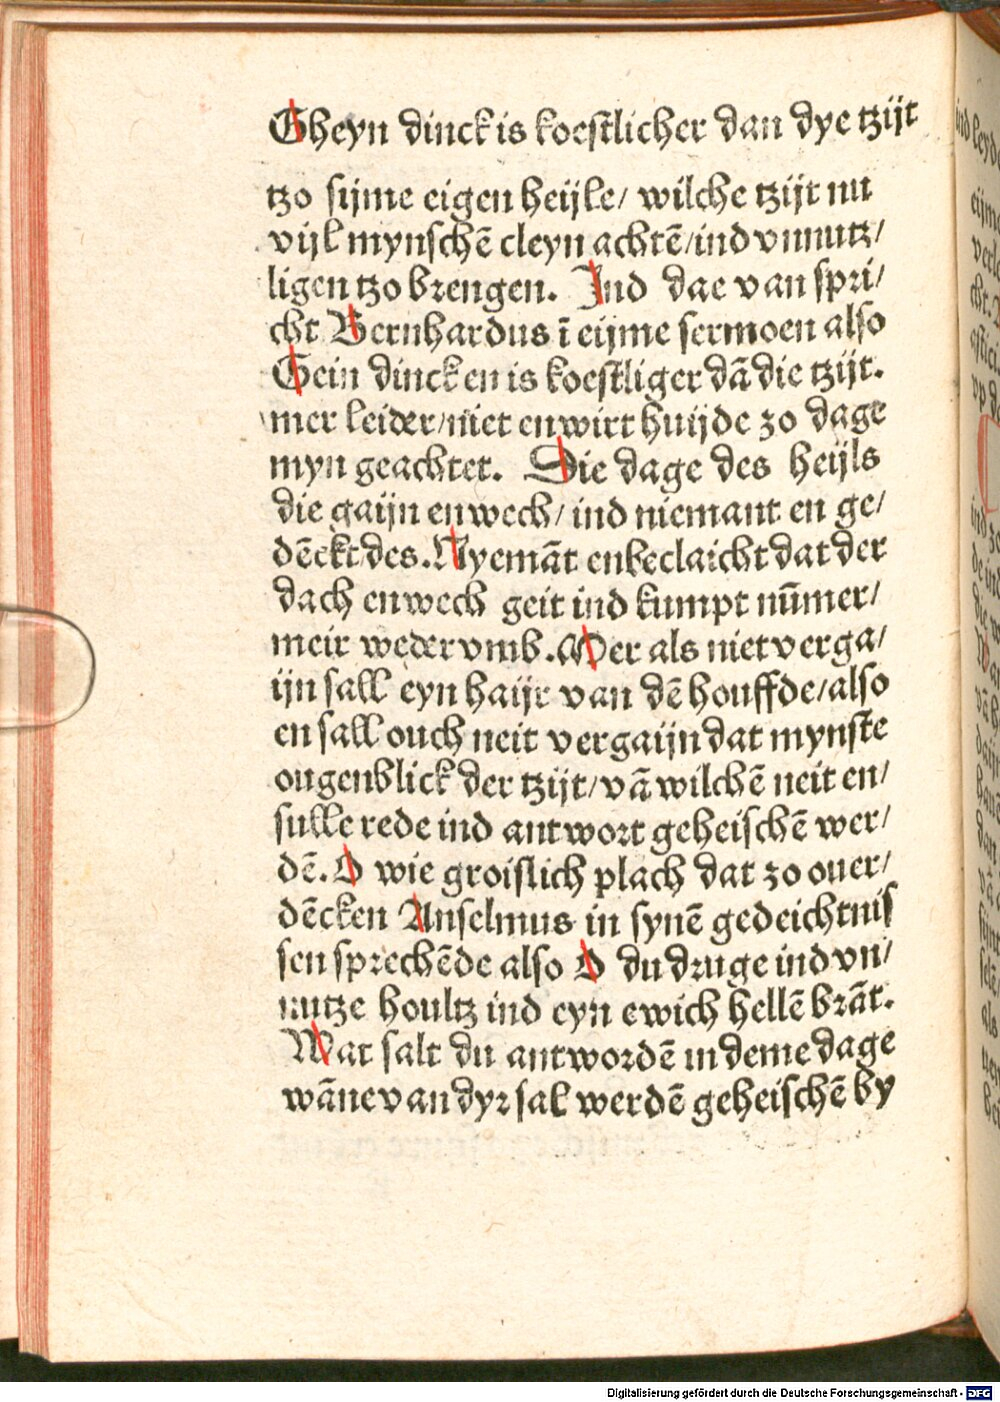 Gheyn dinck is koestlicher dan dye tzijt
tzo sijme eigen heijle/ wilche tzijt nu
vijl mynschē cleyn achtē/ind vnnutz/
ligen tzo brengen. Ind dae van spri/
cht Bernhardus ī eijme sermoen also
Gein dinck en is koestliger dā die tzijt.
mer leider/niet enwirt huijde zo dage
myn geachtet. Die dage des heijls
die gaijn enwech/ ind niemant en ge/
dēckt des. Nyemāt enbeclaicht dat der
dach enwech geit ind kumpt nūmer/
meir weder vmb. Mer als niet verga/
ijn sall eyn haijr van dē houffde/also
en sall ouch neit vergaijn dat mynste
ougenblick der tzijt/vā wilchē neit en/
sulle rede ind antwort geheischē wer/
dē. O wie groislich plach dat zo ouer/
dēcken Anselmus in synē gedeichtnis
sen sprechēde also O du druge ind vn/
nutze houltz ind eyn ewich hellē brāt.
Wat salt du antwordē in deme dage
wāne van dyr sal werdē geheischē by
Digitalisierung gefördert durch die Deutsche Forschungsgemeinschaft - DFG